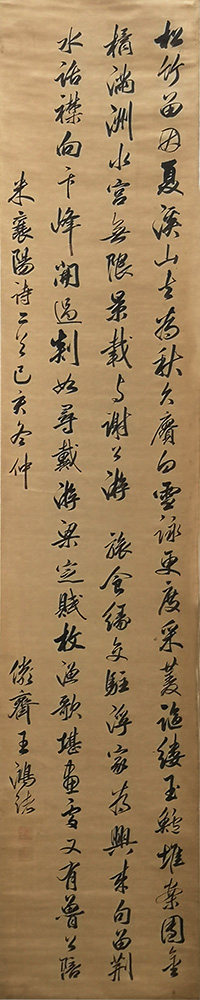 松竹留因夏溪山去為秋久賡白雪詠更度采菱謳縷玉鱸堆案團金
橘滿洲水宮無限景載与謝公游　旅食緣交駐浮家為興來句留荊
水話襟向卞峰開過剡如尋戴游梁定賦枚漁歌堪畫處又有魯公陪
米襄陽詩二首己亥冬仲
儼齋王鴻緒